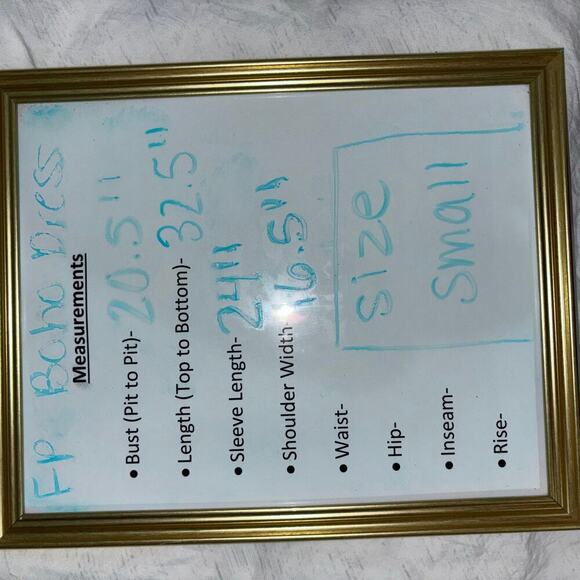 FP Boho Dress
Measurements
• Bust (Pit to Pit)- 20.5"
• Length (Top to Bottom)- 32.5"
• Sleeve Length- 24"
• Shoulder Width- 16.5"
• Waist-
• Hip-
• Inseam-
• Rise-
Size
Small